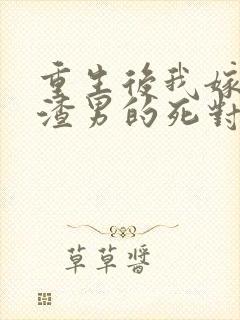 重生後我嫁
渣男的死對
草草醬